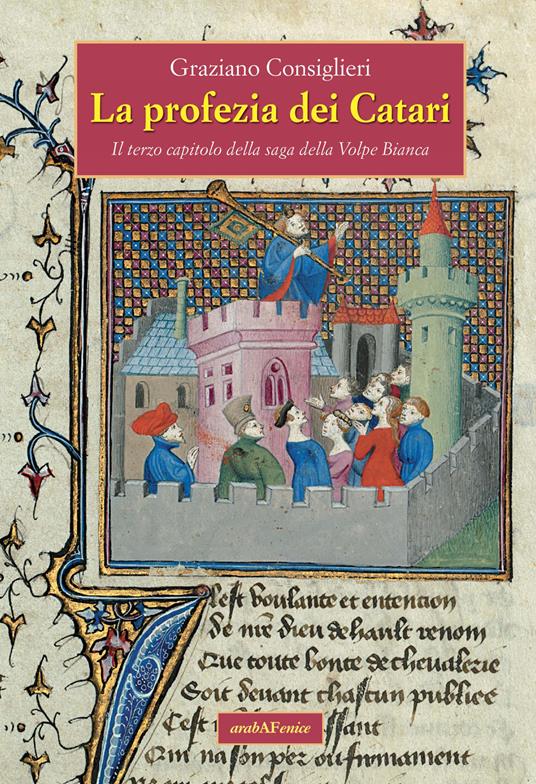 Graziano Consiglieri
La profezia dei Catari
Il terzo capitolo della saga della Volpe Bianca
lest voulante et entencion
de nre dieu de hault renom
Que toute bonte de chevalerie
Soit devant chascun publiee
Cest
sant
arabAFenice
Qui na son per ou firmament